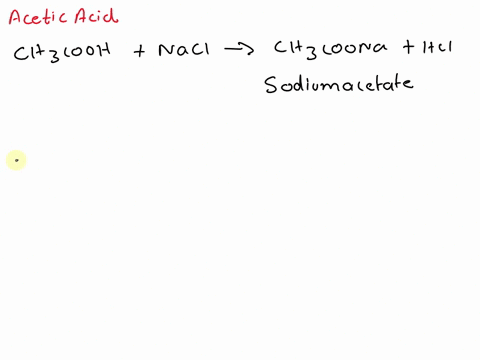 Acetic Acid
CH3COOH + NaCl → CH3COONa + HCl
Sodiumacetate